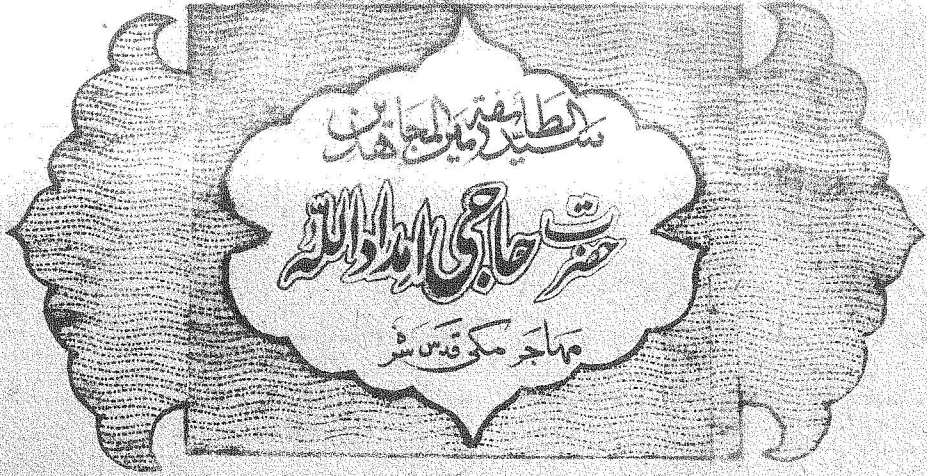 سیّد الطائفۃ امیر المجاھدین
حضرت حاجی امداد اللہ
مہاجر مکی قدس سرہ